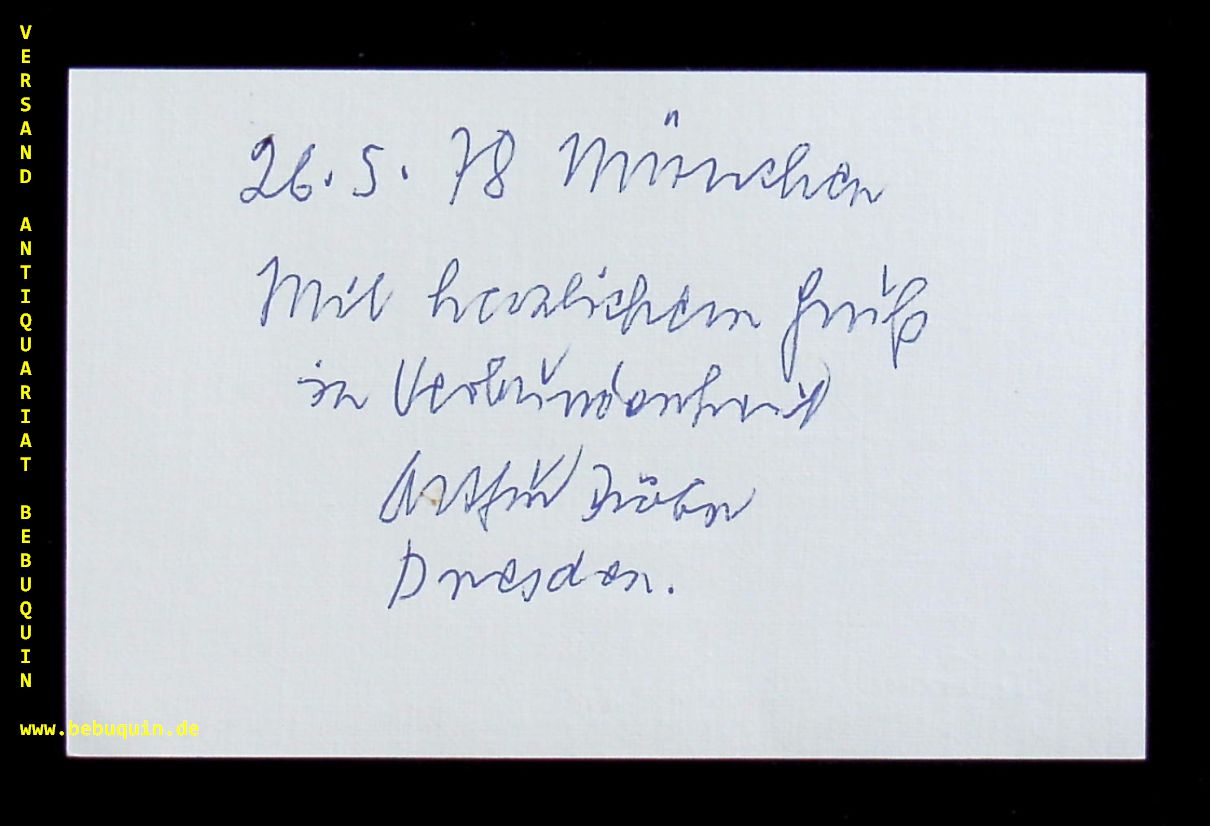 VERSAND ANTIQUARIAT BEBUQUIN
26.5.78 München
Mit herzlichem Gruß
in Verbundenheit
Arthur
Dresden.
www.bebuquin.de